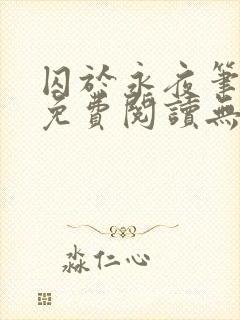 囚於永夜筆
免費閱讀無
淼仁心